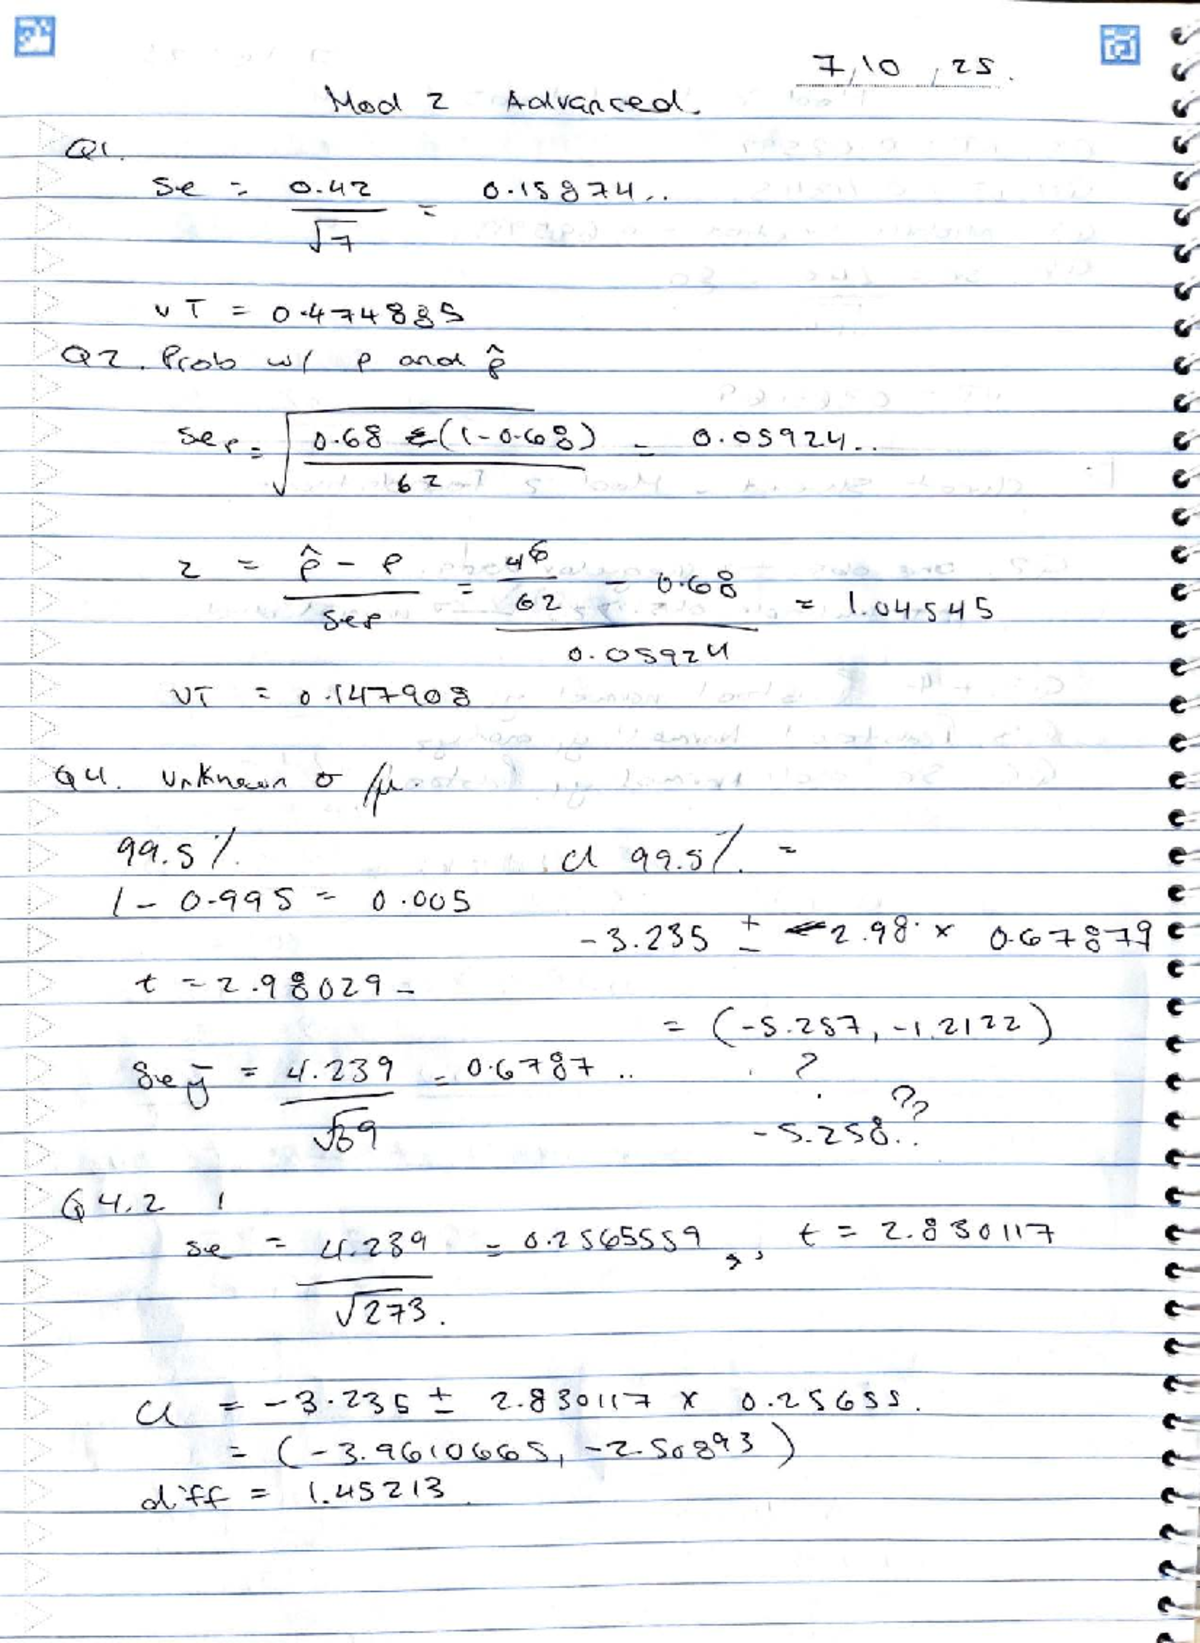 7,10,25.
Mod 2 Advanced.
Q1.
se = 0.42 / √7 = 0.15874..
UT = 0.474835
Q2. Prob w/ p and p̂
se_p = √(0.68 (1-0.68) / 62) = 0.05924..
z = (p̂ - p) / se_p = (46/62 - 0.68) / 0.05924 = 1.04545
UT = 0.147908
Q4. Unknown σ μ.
99.5%. CI 99.5%. =
1 - 0.995 = 0.005
-3.235 ± 2.98 × 0.67879
t = 2.98029-
= (-5.257, -1.2122)
se_ȳ = 4.239 / √39 = 0.6787..
? ??
-5.258..
Q4.2
se = 4.239 / √273. = 0.2565559,, t = 2.830117
CI = -3.235 ± 2.830117 × 0.25655.
= (-3.9610665, -2.50893)
diff = 1.45213